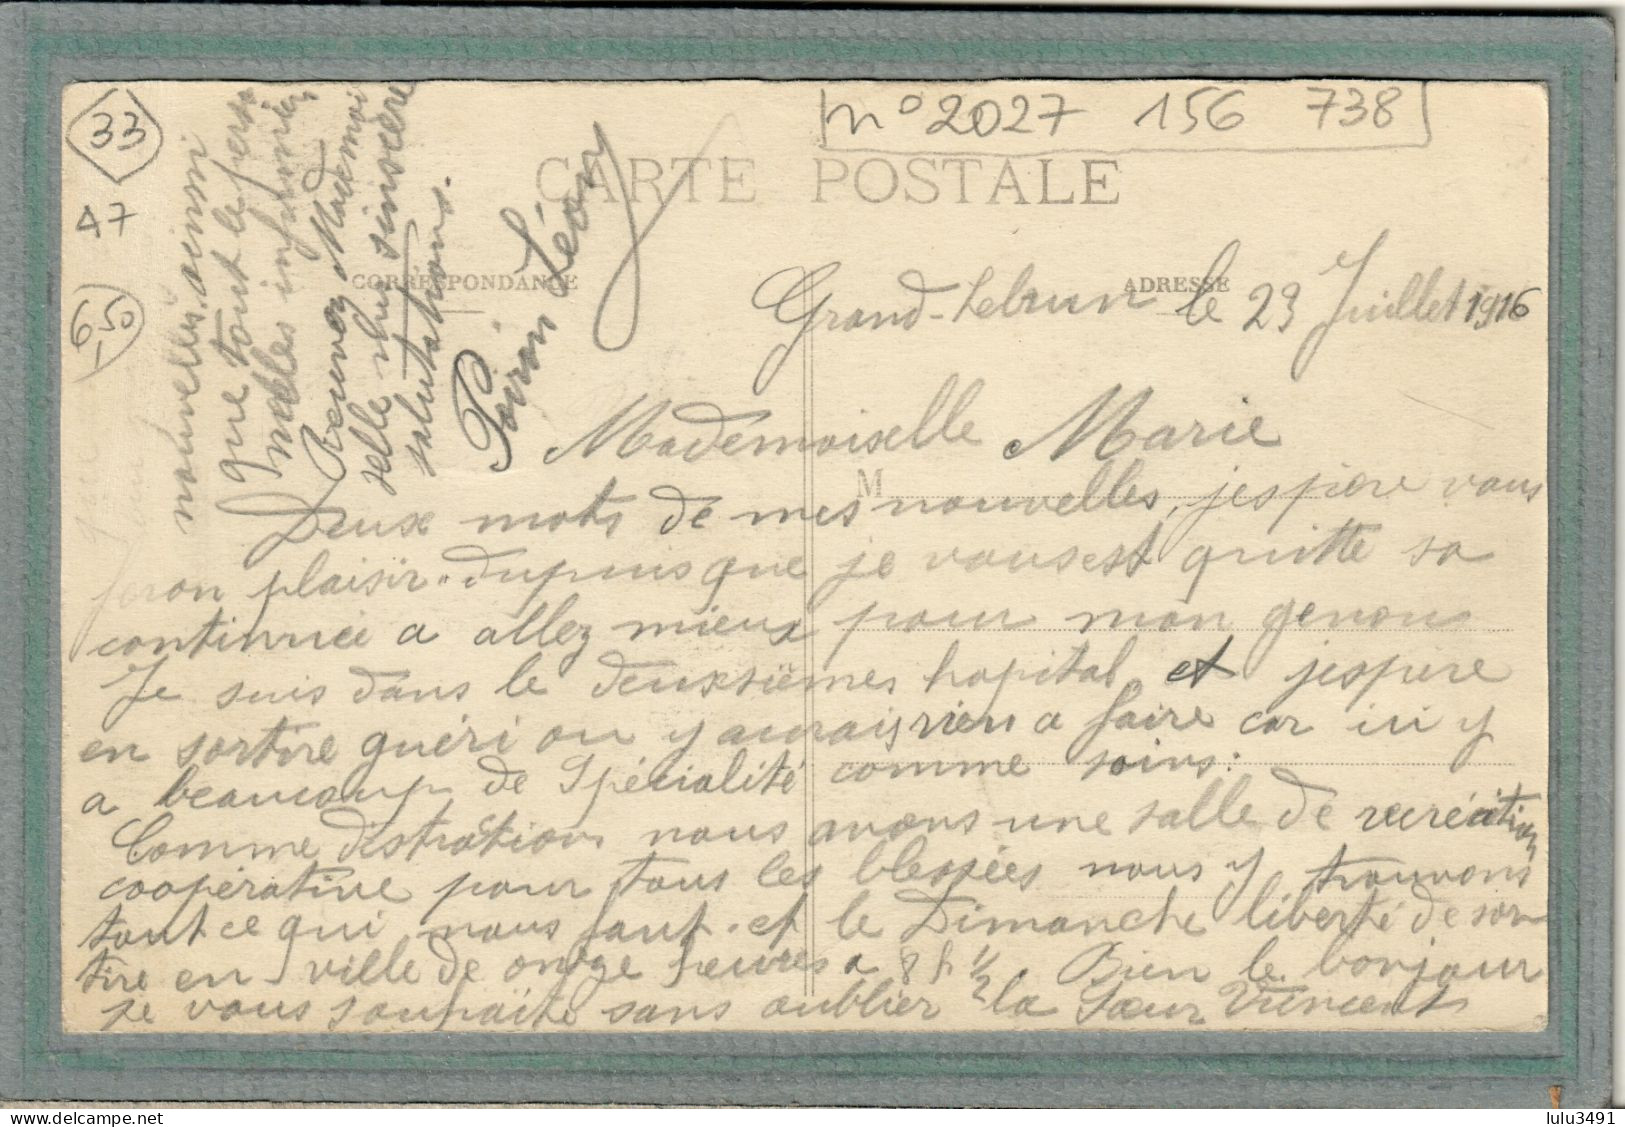 33
47
6,50
n° 2027 156 738
CARTE POSTALE
CORRESPONDANCE
ADRESSE
Grand-Lebrun le 23 Juillet 1916
Mademoiselle Marie
M
Deux mots de mes nouvelles, jespère vous
feron plaisir. dupuis que je vousest quitte sa
continuée a allez mieux pour mon genou
Je suis dans le deuxsièmes hopital et jespere
en sortire guéri ou y aurais rien a faire car ici y
a beaucoup de spécialité comme soins:
Comme distration nous avons une salle de recréation
coopérative pour tous les blessées nous y trouvons
tout ce qui nous faut. et le Dimanche liberté de sor
tire en ville de onze heures a 8 h 1/2 Bien le bonjour
je vous souhaite sans oublier la Sœur Vincent
nouvelles ainsi
que tout le perso
nelles infirmier
Recevez Mademoi
selle mes sinscère
salutations.
Poiron Léon
lulu3491